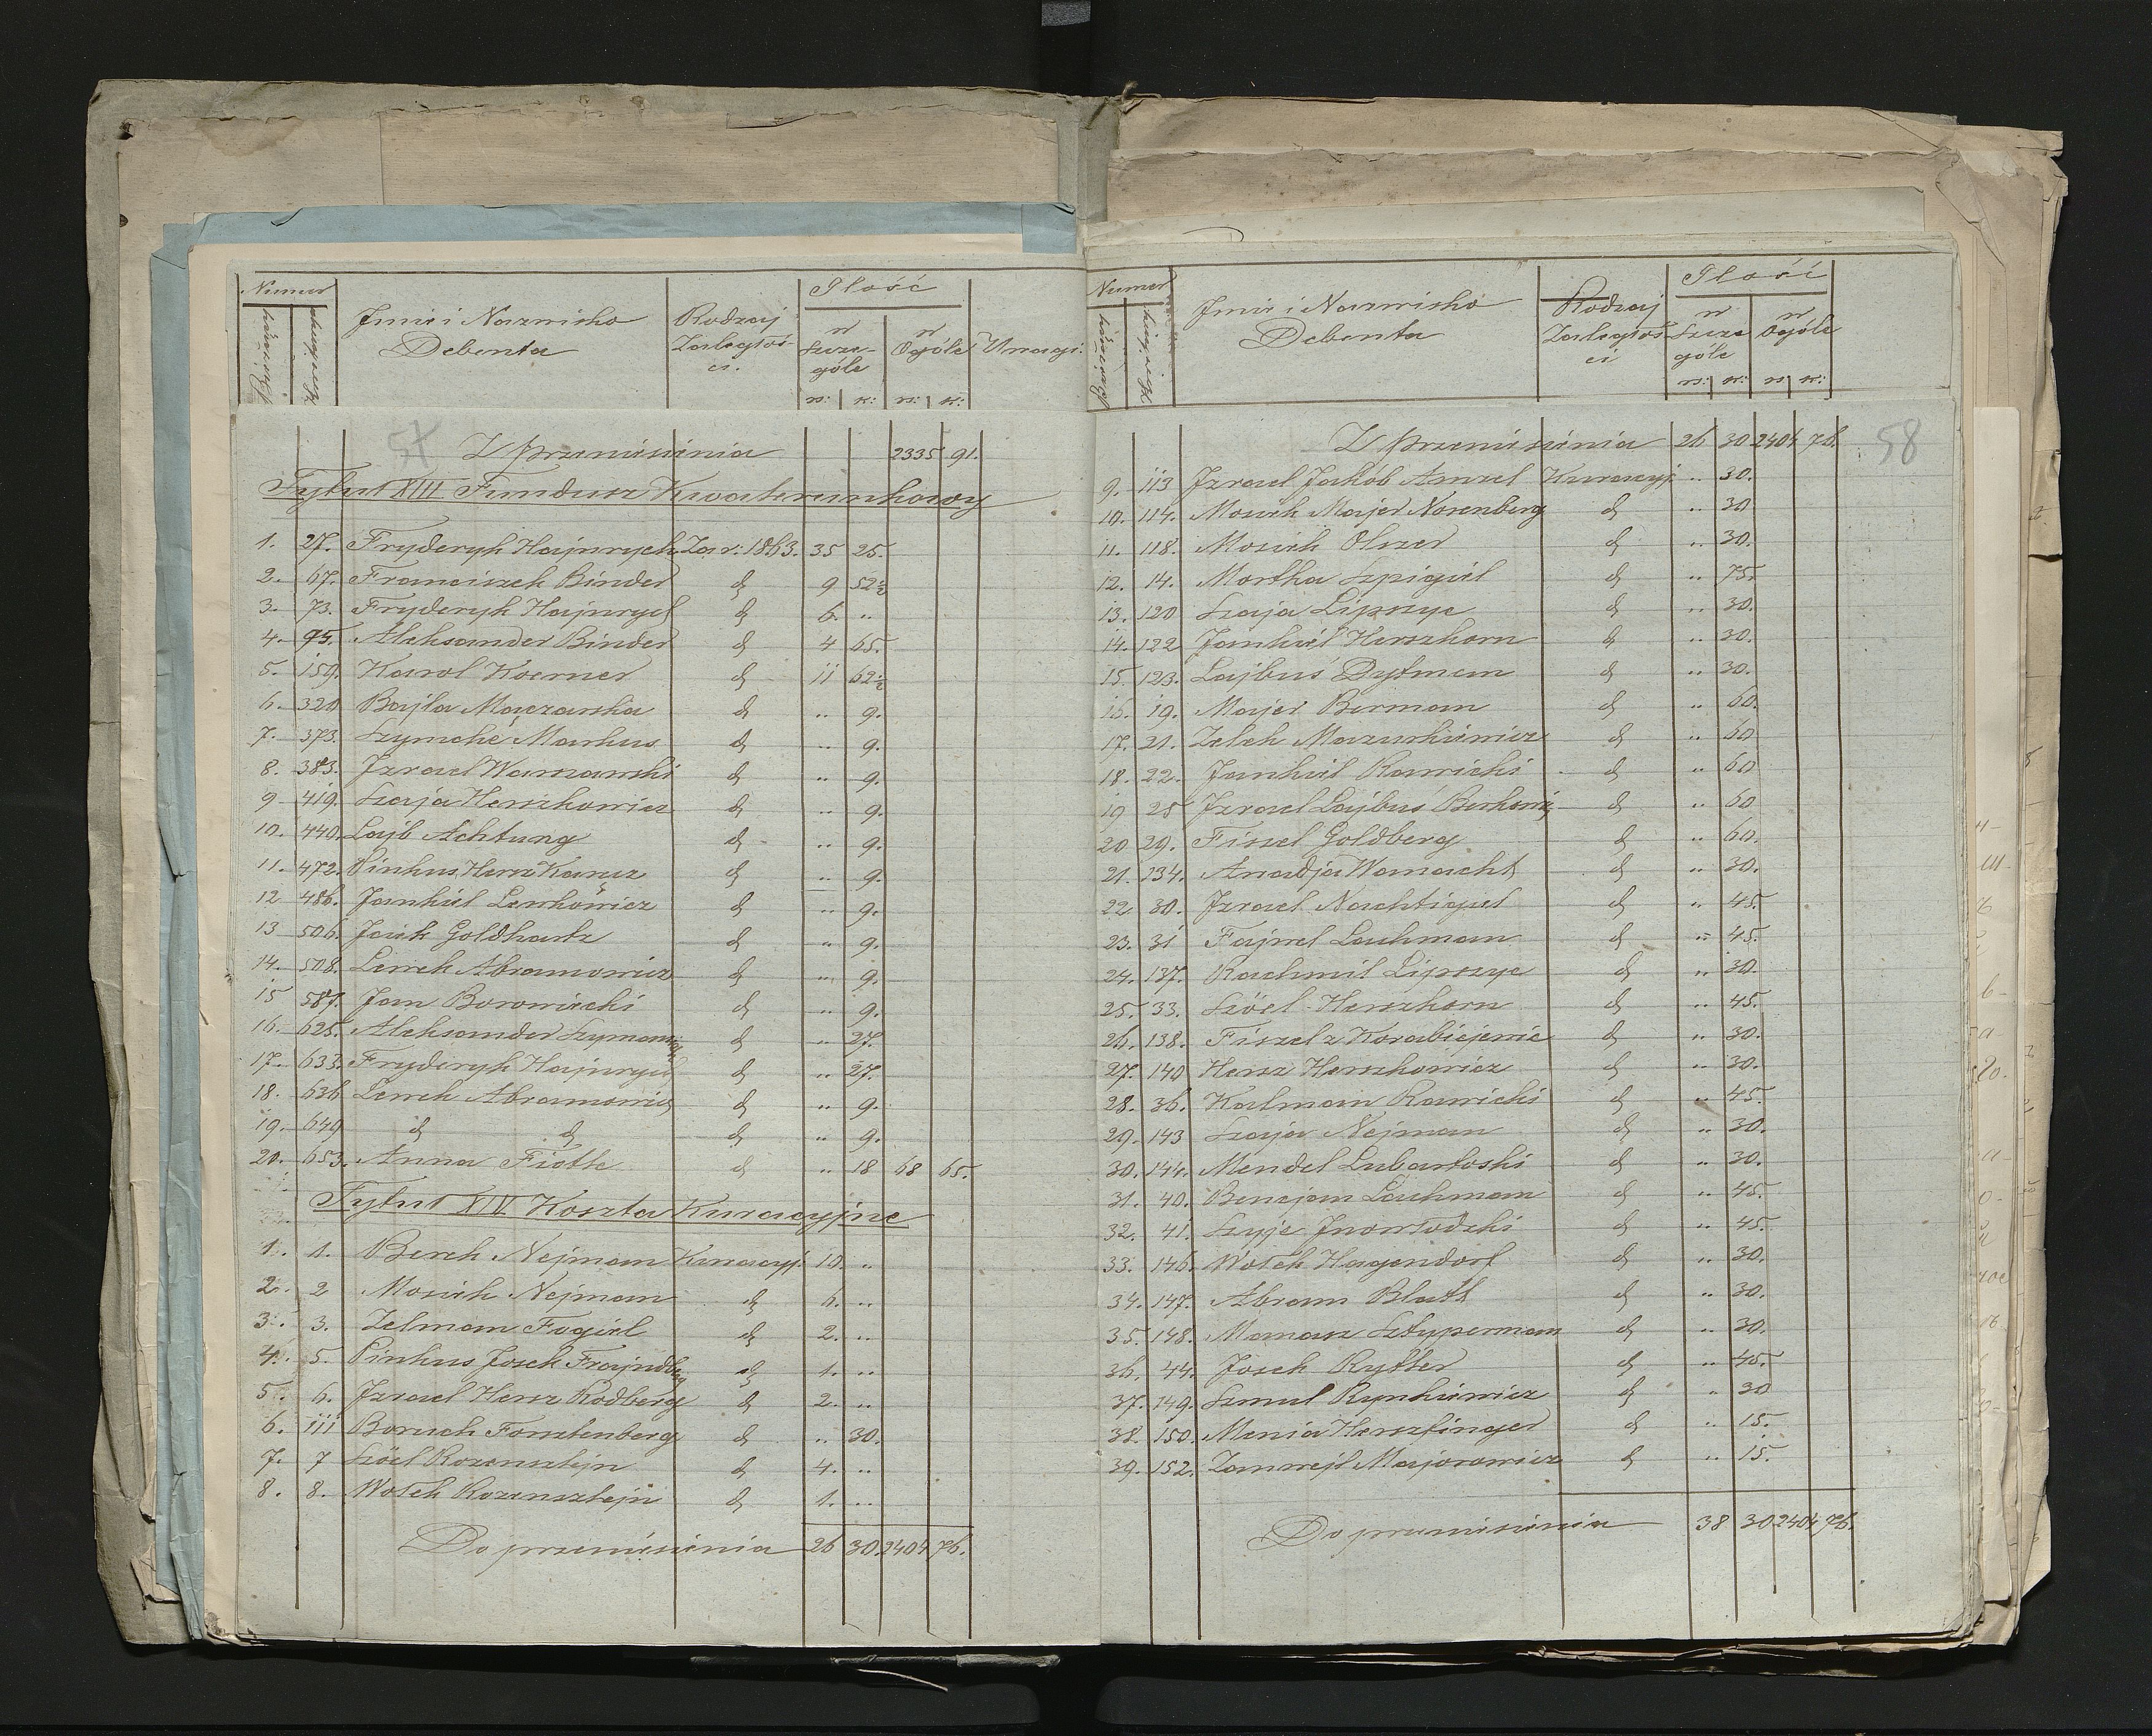 Numer
Imie i Nazwisko
Debenta
Rodzaj
Zaległoś-
ci.
Ilość
w
Szcze-
góle
w
Ogóle
Uwagi.
rs: k: rs: k:
57
Z przeniesienia 2335 91.
Tytuł XIII Fundusz Kwaterunkowy
1. 27. Fryderyk Hajnrych Zar: 1863. 35 25.
2. 67. Franciszek Binder d 9 52½
3. 73. Fryderyk Hajnrych d 6. „
4. 95. Aleksander Binder d 4 65.
5. 159. Karol Koerner d 11 62½
6. 320 Bajla Maczarska d „ 9.
7. 373. Szymche Markus d „ 9.
8. 383. Izrael Warszawski d „ 9.
9 419. Szaja Herszkowicz d „ 9.
10. 440. Lajb Achtung d „ 9.
11. 472. Pinkus Hersz Karcz d „ 9.
12 486. Jankiel Lewkowicz d „ 9.
13 506. Josek Goldhartz d „ 9.
14. 508. Lewek Abramowicz d „ 9.
15 587. Jan Borowiecki d „ 9.
16. 625. Aleksander Szymański d „ 27.
17. 633. Fryderyk Hajnrych d „ 27.
18. 636 Lewek Abramowicz d „ 9.
19. 649 d d d „ 9.
20. 653. Anna Fiotk d „ 18 68 65.
Tytuł XIV Koszta Kuracyjne
1. 1. Berek Nejman Kuracyj. 10. „
2. 2 Mosiek Nejman d 6. „
3. 3. Zelman Fogiel d 2. „
4. 5. Pinkus Josek Frajndberg d 1. „
5. 6. Izrael Hersz Rodberg d 2. „
6. 111 Boruch Forsztenberg d „ 30.
7. 7 Szöel Rozensztejn d 4. „
8. 8. Wolek Rozensztejn d 1. „
Do przeniesienia 26 30. 2404 76.
Numer
Imie i Nazwisko
Debenta
Rodzaj
Zaległoś
ci
Ilość
w
Szcze
góle
w
Ogóle
rs: k: rs: k:
58
Z przeniesienia 26 30 2404 76.
9. 113 Izrael Jakób Amzel Kuracyj. „ 30.
10. 114. Mosiek Majer Norenberg d „ 30
11. 118. Mosiek Olszer d „ 30.
12. 14. Mortka Szpigiel d „ 75.
13. 120 Szaja Lipszyc d „ 30.
14. 122 Jankiel Herszkorn d „ 30.
15. 123. Lajbuś Dytman d „ 30.
16. 19. Majer Berman d „ 60.
17. 21. Zelek Mazurkiewicz d „ 60
18. 22. Jankiel Rawicki d „ 60
19 25 Izrael Lajbuś Berkowicz d „ 60
20 29. Fiszel Goldberg d „ 60.
21. 134. Anadja Wamacht d „ 30.
22. 30. Izrael Nachtigiel d „ 45.
23. 31 Fajwel Lachman d „ 45.
24. 137. Rachmil Lipszyc d „ 30.
25. 33. Szöel Herszkorn d „ 45.
26. 138. Fiszel z Korabiejewic d „ 30.
27. 140 Hersz Herszkowicz d „ 30.
28. 36. Kalman Rawicki d „ 45.
29. 143 Szaja Nejman d „ 30.
30. 144. Mendel Lubartoski d „ 30.
31. 40. Benejam Lachman d „ 45.
32. 41. Szyje Inowłodzki d „ 45.
33. 146. Wolek Hagendorf d „ 30.
34. 147. Abram Blatt d „ 30.
35. 148. Manasz Sztyperman d „ 30.
36. 44. Josek Rytter d „ 45.
37. 149. Szmul Rynkiewicz d „ 30
38. 150. Menia Herszfinger d „ 15.
39. 152. Zanwejl Majorowicz d „ 15.
Do przeniesienia 38 30 2404 76.